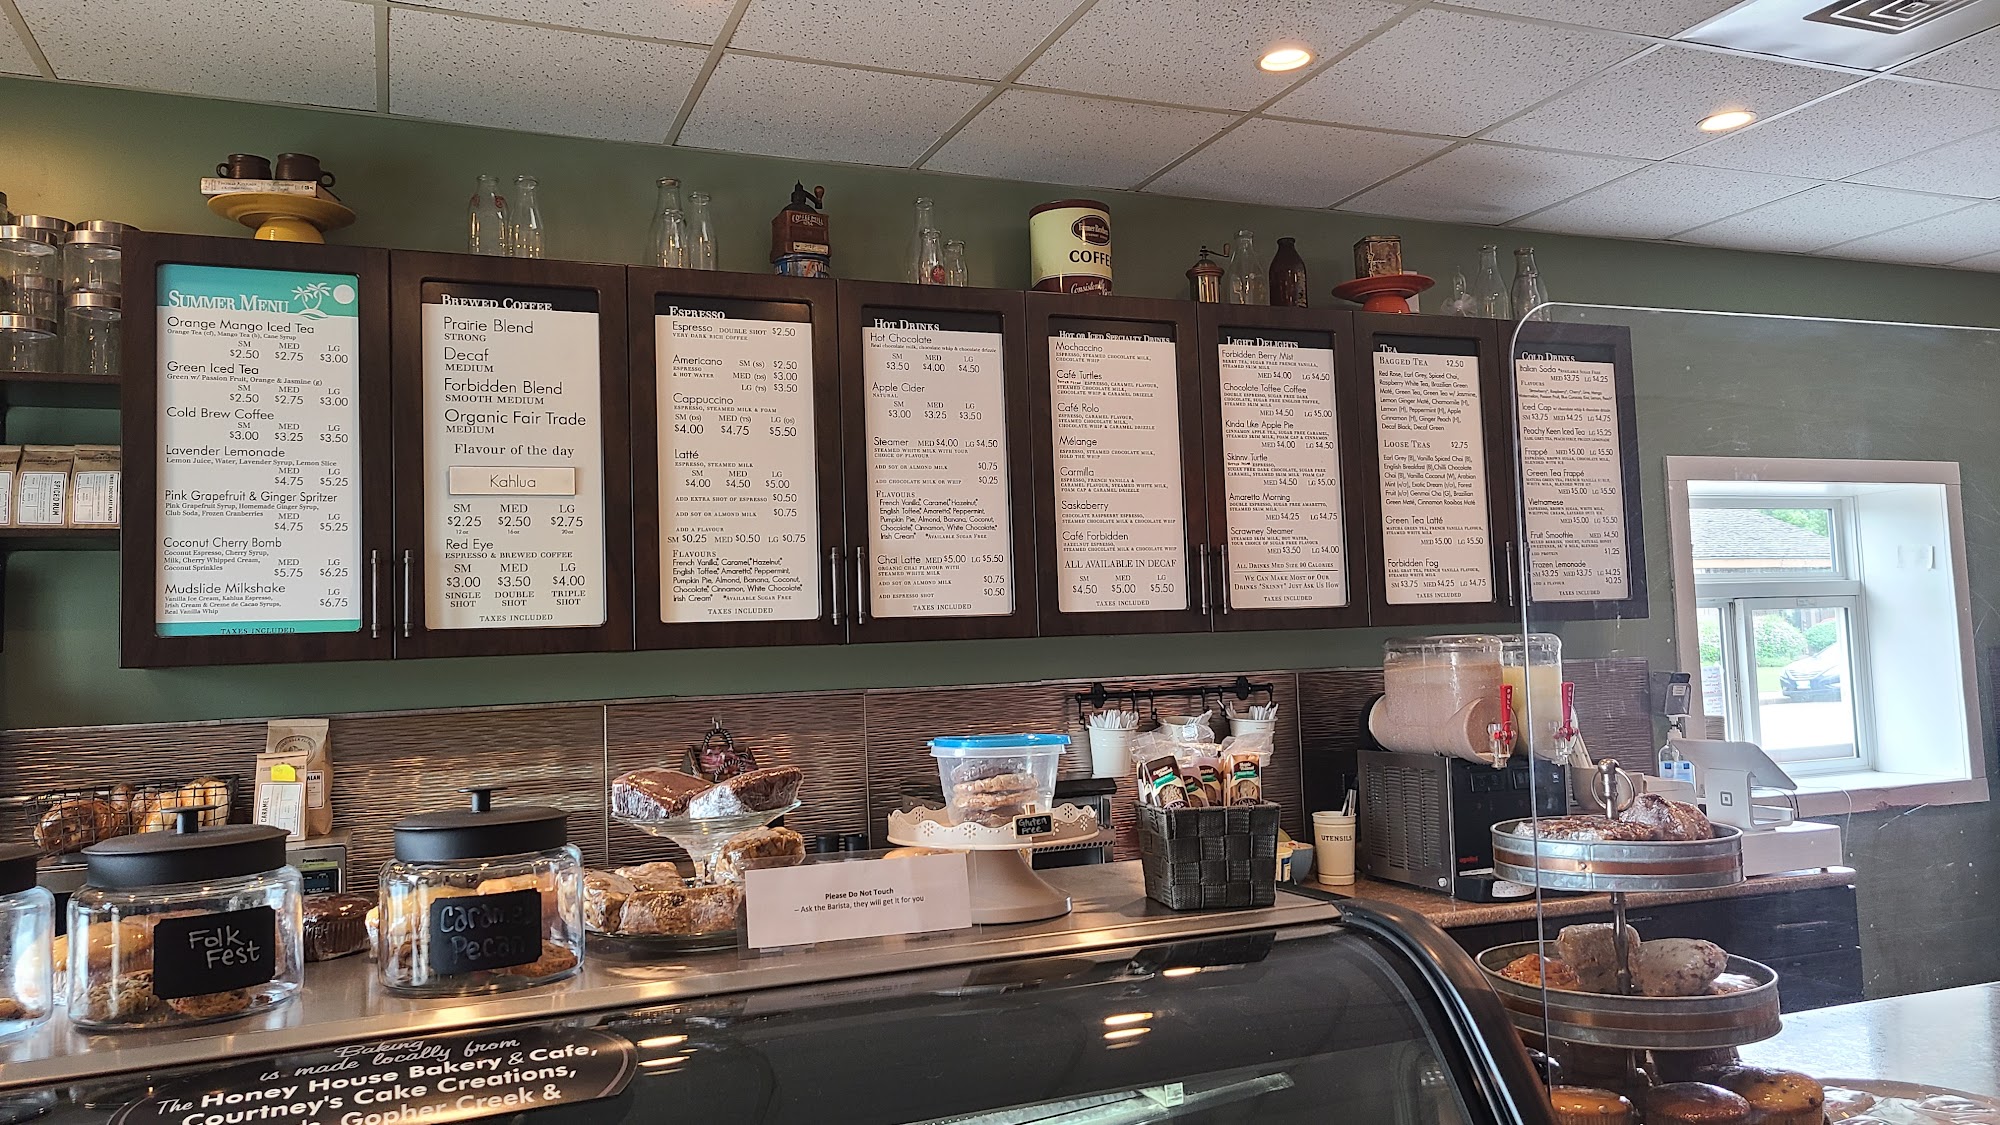 SUMMER MENU
Orange Mango Iced Tea
Orange Tea (cf), Mango Tea (b), Cane Syrup
SM MED LG
$2.50 $2.75 $3.00
Green Iced Tea
Green w/ Passion Fruit, Orange & Jasmine (g)
SM MED LG
$2.50 $2.75 $3.00
Cold Brew Coffee
SM MED LG
$3.00 $3.25 $3.50
Lavender Lemonade
Lemon Juice, Water, Lavender Syrup, Lemon Slice
MED LG
$4.75 $5.25
Pink Grapefruit & Ginger Spritzer
Pink Grapefruit Syrup, Homemade Ginger Syrup,
Club Soda, Frozen Cranberries
MED LG
$4.75 $5.25
Coconut Cherry Bomb
Coconut Espresso, Cherry Syrup,
Milk, Cherry Whipped Cream,
Coconut Sprinkles
MED LG
$5.75 $6.25
Mudslide Milkshake
Vanilla Ice Cream, Kahlua Espresso,
Irish Cream & Creme de Cacao Syrups,
Real Vanilla Whip
LG
$6.75
TAXES INCLUDED
BREWED COFFEE
Prairie Blend
STRONG
Decaf
MEDIUM
Forbidden Blend
SMOOTH MEDIUM
Organic Fair Trade
MEDIUM
Flavour of the day
Kahlua
SM MED LG
$2.25 $2.50 $2.75
12 oz 16 oz 20 oz
Red Eye
ESPRESSO & BREWED COFFEE
SM MED LG
$3.00 $3.50 $4.00
SINGLE SHOT DOUBLE SHOT TRIPLE SHOT
TAXES INCLUDED
ESPRESSO
Espresso DOUBLE SHOT $2.50
VERY DARK RICH COFFEE
Americano SM (SS) $2.50
ESPRESSO & HOT WATER MED (DS) $3.00
LG (TS) $3.50
Cappuccino
ESPRESSO, STEAMED MILK & FOAM
SM (DS) MED (TS) LG (QS)
$4.00 $4.75 $5.50
Latté
ESPRESSO, STEAMED MILK
SM MED LG
$4.00 $4.50 $5.00
ADD EXTRA SHOT OF ESPRESSO $0.50
ADD SOY OR ALMOND MILK $0.75
ADD A FLAVOUR
SM $0.25 MED $0.50 LG $0.75
FLAVOURS
French Vanilla,* Caramel,* Hazelnut,*
English Toffee,* Amaretto,* Peppermint,
Pumpkin Pie, Almond, Banana, Coconut,
Chocolate,* Cinnamon, White Chocolate,*
Irish Cream* *AVAILABLE SUGAR FREE
TAXES INCLUDED
HOT DRINKS
Hot Chocolate
Real chocolate milk, chocolate whip & chocolate drizzle
SM MED LG
$3.50 $4.00 $4.50
Apple Cider
NATURAL
SM MED LG
$3.00 $3.25 $3.50
Steamer MED $4.00 LG $4.50
STEAMED WHITE MILK WITH YOUR
CHOICE OF FLAVOUR
ADD SOY OR ALMOND MILK $0.75
ADD CHOCOLATE MILK OR WHIP $0.25
FLAVOURS
French Vanilla,* Caramel,* Hazelnut,*
English Toffee,* Amaretto,* Peppermint,
Pumpkin Pie, Almond, Banana, Coconut,
Chocolate,* Cinnamon, White Chocolate,*
Irish Cream* *AVAILABLE SUGAR FREE
Chai Latte MED $5.00 LG $5.50
ORGANIC CHAI FLAVOUR WITH
STEAMED WHITE MILK
ADD SOY OR ALMOND MILK $0.75
ADD ESPRESSO SHOT $0.50
TAXES INCLUDED
HOT OR ICED SPECIALTY DRINKS
Mochaccino
ESPRESSO, STEAMED CHOCOLATE MILK,
CHOCOLATE WHIP
Café Turtles
ESPRESSO, CARAMEL FLAVOUR,
STEAMED CHOCOLATE MILK,
CHOCOLATE WHIP & CARAMEL DRIZZLE
Café Rolo
ESPRESSO, CARAMEL FLAVOUR,
STEAMED CHOCOLATE MILK,
CHOCOLATE WHIP & CARAMEL DRIZZLE
Mélange
ESPRESSO, STEAMED CHOCOLATE MILK,
HOLD THE WHIP
Carmilla
ESPRESSO, FRENCH VANILLA &
CARAMEL FLAVOUR, STEAMED WHITE MILK,
FOAM CAP & CARAMEL DRIZZLE
Saskaberry
CHOCOLATE RASPBERRY ESPRESSO,
STEAMED CHOCOLATE MILK & CHOCOLATE WHIP
Café Forbidden
HAZELNUT ESPRESSO,
STEAMED CHOCOLATE MILK & CHOCOLATE WHIP
ALL AVAILABLE IN DECAF
SM MED LG
$4.50 $5.00 $5.50
TAXES INCLUDED
LIGHT DELIGHTS
Forbidden Berry Mist
BERRY TEA, SUGAR FREE FRENCH VANILLA,
STEAMED SKIM MILK
MED $4.00 LG $4.50
Chocolate Toffee Coffee
DOUBLE ESPRESSO, SUGAR FREE DARK
CHOCOLATE, SUGAR FREE ENGLISH TOFFEE,
STEAMED SKIM MILK
MED $4.50 LG $5.00
Kinda Like Apple Pie
CINNAMON APPLE TEA, SUGAR FREE CARAMEL,
STEAMED SKIM MILK, FOAM CAP & CINNAMON
MED $4.00 LG $4.50
Skinny Turtle
ESPRESSO,
SUGAR FREE DARK CHOCOLATE, SUGAR FREE
CARAMEL, STEAMED SKIM MILK, FOAM CAP
MED $4.50 LG $5.00
Amaretto Morning
DOUBLE ESPRESSO, SUGAR FREE AMARETTO,
STEAMED SKIM MILK
MED $4.25 LG $4.75
Scrawney Steamer
STEAMED SKIM MILK, HOT WATER,
YOUR CHOICE OF SUGAR FREE FLAVOUR
MED $3.50 LG $4.00
ALL DRINKS MED SIZE 90 CALORIES
WE CAN MAKE MOST OF OUR
DRINKS "SKINNY" JUST ASK US HOW
TAXES INCLUDED
TEA
BAGGED TEA $2.50
Red Rose, Earl Grey, Spiced Chai,
Raspberry White Tea, Brazilian Green
Maté, Green Tea, Green Tea w/ Jasmine,
Lemon Ginger Maté, Chamomile (H),
Lemon (H), Peppermint (H), Apple
Cinnamon (H) Ginger Peach (H),
Decaf Black, Decaf Green
LOOSE TEAS $2.75
Earl Grey (B), Vanilla Spiced Chai (B),
English Breakfast (B), Chilli Chocolate
Chai (B), Vanilla Coconut (W), Arabian
Mint (w/o), Exotic Dream (r/o), Forest
Fruit (r/o) Genmai Cha (G), Brazilian
Green Maté, Cinnamon Rooibos Maté
Green Tea Latté
MATCHA GREEN TEA, FRENCH VANILLA FLAVOUR,
STEAMED WHITE MILK
MED $5.00 LG $5.50
Forbidden Fog
EARL GRAY TEA, FRENCH VANILLA FLAVOUR,
STEAMED WHITE MILK
SM $3.75 MED $4.25 LG $4.75
TAXES INCLUDED
COLD DRINKS
Italian Soda *AVAILABLE SUGAR FREE
MED $3.75 LG $4.25
FLAVOURS
Iced Cap w/ chocolate whip & chocolate drizzle
SM $3.75 MED $4.25 LG $4.75
Peachy Keen Iced Tea LG $5.25
EARL GREY TEA, PEACH SYRUP, FROZEN LEMONADE
Frappé MED $5.00 LG $5.50
ESPRESSO, BROWN SUGAR, CHOCOLATE MILK,
BLENDED WITH ICE
Green Tea Frappé
MATCHA GREEN TEA, FRENCH VANILLA SYRUP,
WHITE MILK, BLENDED W/ ICE
MED $5.00 LG $5.50
Vietnamese
ESPRESSO, BROWN SUGAR, WHITE MILK,
MED $5.00 LG $5.50
Fruit Smoothie MED $4.50
ADD PROTEIN $1.25
Frozen Lemonade
SM $3.25 MED $3.75 LG $4.25
ADD A FLAVOUR $0.25
TAXES INCLUDED
COFFEE
Consistently
SPICED RUM
CARAMEL
Folk
Fest
Caramel
Pecan
Please Do Not Touch
– Ask the Barista, they will get it for you
Gluten
Free
UTENSILS
PULL
Baking
is made locally from
The Honey House Bakery & Cafe,
Courtney's Cake Creations,
Gopher Creek &